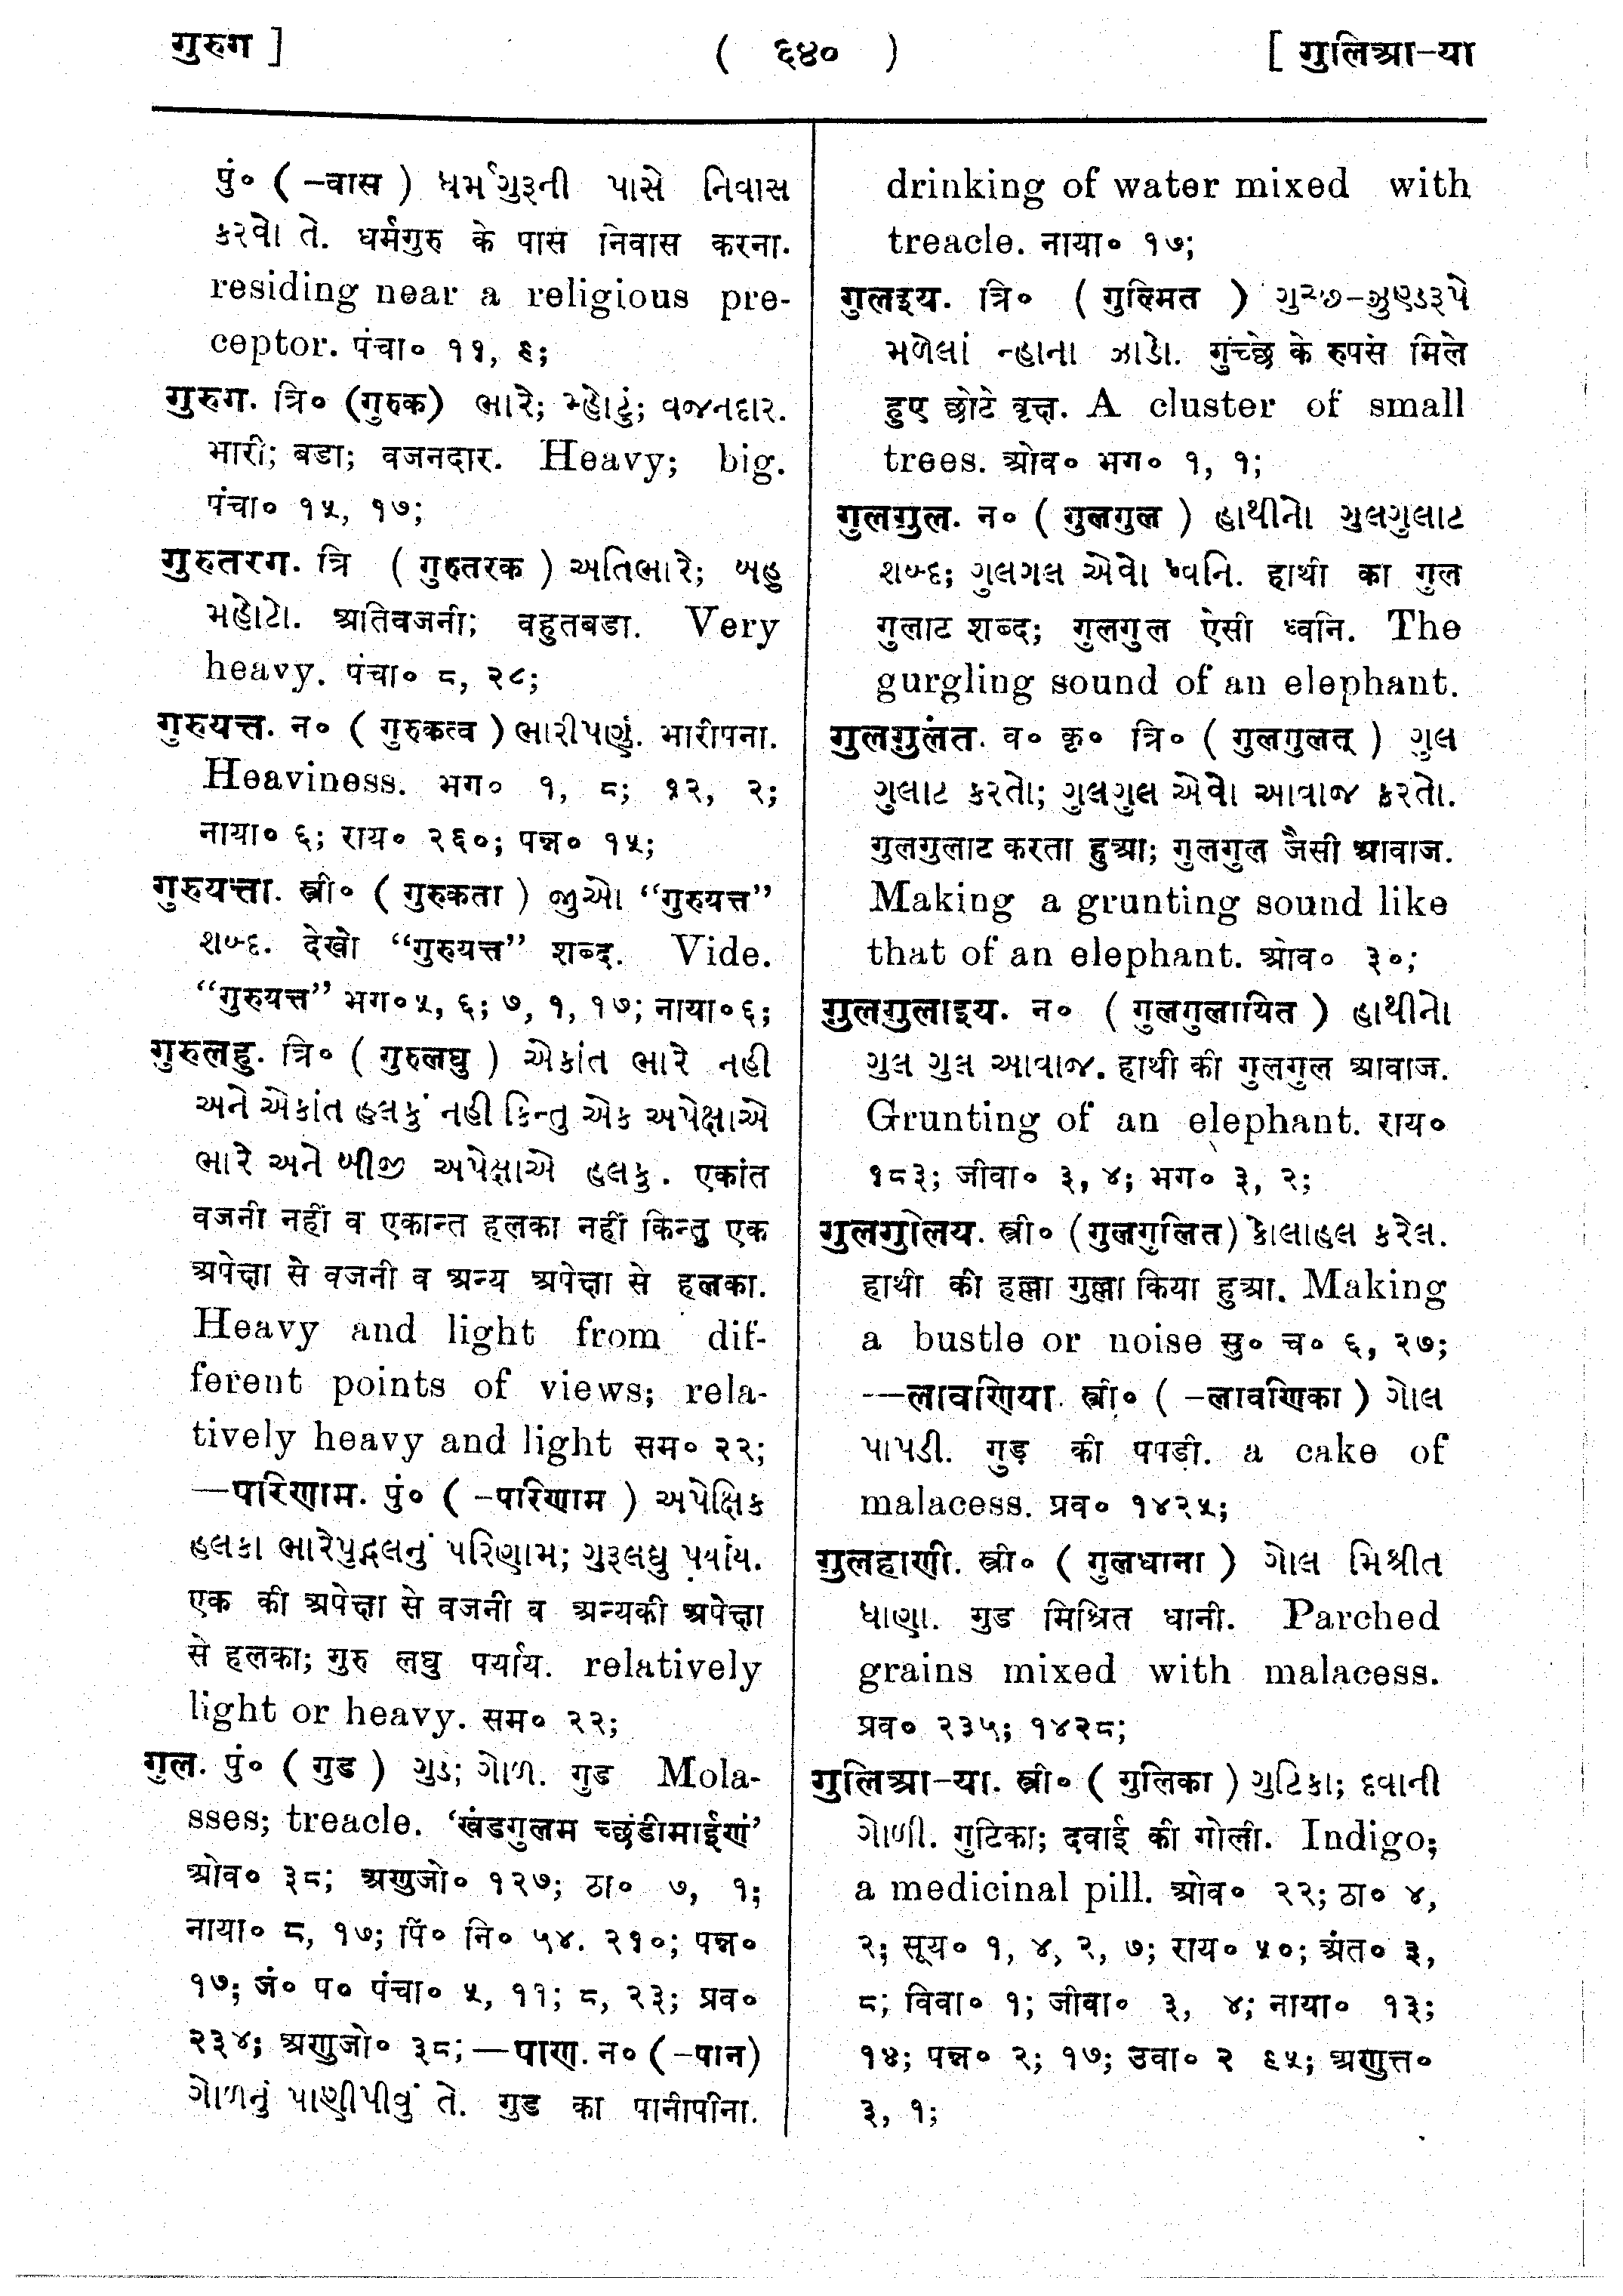 गुरुग ]
( ६४० )
[ गुलिआ-या
पुं० ( -वास ) ધર્મગુરૂની પાસે નિવાસ
કરવો તે. धर्मगुरु के पास निवास करना.
residing near a religious pre-
ceptor. पंचा० ११, ६;
गुरुग. त्रि० (गुरुक) ભારે; મ્હોટું; વજનદાર.
भारी; बडा; वजनदार. Heavy; big.
पंचा० १५, १७;
गुरुतरग. त्रि ( गुरुतरक ) અતિભારે; બહુ
મહોટો. अतिवजनी; वहुतबडा. Very
heavy. पंचा० ८, २८;
गुरुयत्त. न० ( गुरुकत्व ) ભારીપણું. भारीपना.
Heaviness. भग० १, ८; १२, २;
नाया० ६; राय० २६०; पन्न० १५;
गुरुयत्ता. स्त्री० ( गुरुकता ) જુઓ “गुरुयत्त”
શબ્દ. देखो “गुरुयत्त” शब्द. Vide.
“गुरुयत्त” भग० ५, ६; ७, १, १७; नाया० ६;
गुरुलहु. त्रि० ( गुरुलघु ) એકાંત ભારે નહી
અને એકાંત હલકું નહી કિન્તુ એક અપેક્ષાએ
ભારે અને બીજી અપેક્ષાએ હલકુ. एकांत
वजनी नहीं व एकान्त हलका नहीं किन्तु एक
अपेक्षा से वजनी व अन्य अपेक्षा से हलका.
Heavy and light from dif-
ferent points of views; rela-
tively heavy and light सम० २२;
—परिणाम. पुं० ( -परिणाम ) અપેક્ષિક
હલકા ભારેપુદ્ગલનું પરિણામ; ગુરૂલઘુ પર્યાય.
एक की अपेक्षा से वजनी व अन्यकी अपेक्षा
से हलका; गुरु लघु पर्याय. relatively
light or heavy. सम० २२;
गुल. पुं० ( गुड ) ગુડ; ગોળ. गुड Mola-
sses; treacle. ‘खंडगुलम च्छंडीमाईणं’
ओव० ३८; अणुजो० १२७; ठा० ७, १;
नाया० ८, १७; पिं० नि० ५४. २१०; पन्न०
१७; जं० प० पंचा० ५, ११; ८, २३; प्रव०
२३४; अणुजो० ३८; —पाण. न० ( -पान)
ગોળનું પાણીપીવું તે. गुड का पानीपीना.
drinking of water mixed with
treacle. नाया० १७;
गुलइय. त्रि० ( गुल्मित ) ગુચ્છ-ઝુણ્ડરૂપે
મળેલાં ન્હાના ઝાડો. गुंच्छे के रुपसे मिले
हुए छोटे वृक्ष. A cluster of small
trees. ओव० भग० १, १;
गुलगुल. न० ( गुलगुल ) હાથીનો ગુલગુલાટ
શબ્દ; ગુલગલ એવો ધ્વનિ. हाथी का गुल
गुलाट शब्द; गुलगुल ऐसी ध्वनि. The
gurgling sound of an elephant.
गुलगुलंत. व० कृ० त्रि० ( गुलगुलत् ) ગુલ
ગુલાટ કરતો; ગુલગુલ એવો આવાજ કરતો.
गुलगुलाट करता हुआ; गुलगुल जैसी आवाज.
Making a grunting sound like
that of an elephant. ओव० ३०;
गुलगुलाइय. न० ( गुलगुलायित ) હાથીનો
ગુલ ગુલ આવાજ. हाथी की गुलगुल आवाज.
Grunting of an elephant. राय०
१८३; जीवा० ३, ४; भग० ३, २;
गुलगुलिय. स्त्री० (गुलगुलित) કોલાહલ કરેલ.
हाथी की हल्ला गुल्ला किया हुआ. Making
a bustle or noise सु० च० ६, २७;
—लावणिया. स्त्री० ( -लावणिका ) ગોલ
પાપડી. गुड़ की पपड़ी. a cake of
malacess. प्रव० १४२५;
गुलहाणी. स्त्री० ( गुलधाना ) ગોલ મિશ્રીત
ધાણા. गुड मिश्रित धानी. Parched
grains mixed with malacess.
प्रव० २३५; १४२८;
गुलिआ-या. स्त्री० ( गुलिका ) ગુટિકા; દવાની
ગોળી. गुटिका; दवाई की गोली. Indigo;
a medicinal pill. ओव० २२; ठा० ४,
२; सूय० १, ४, २, ७; राय० ५०; अंत० ३,
८; विवा० १; जीवा० ३, ४; नाया० १३;
१४; पन्न० २; १७; उवा० २ ९५; अणुत्त०
३, १;